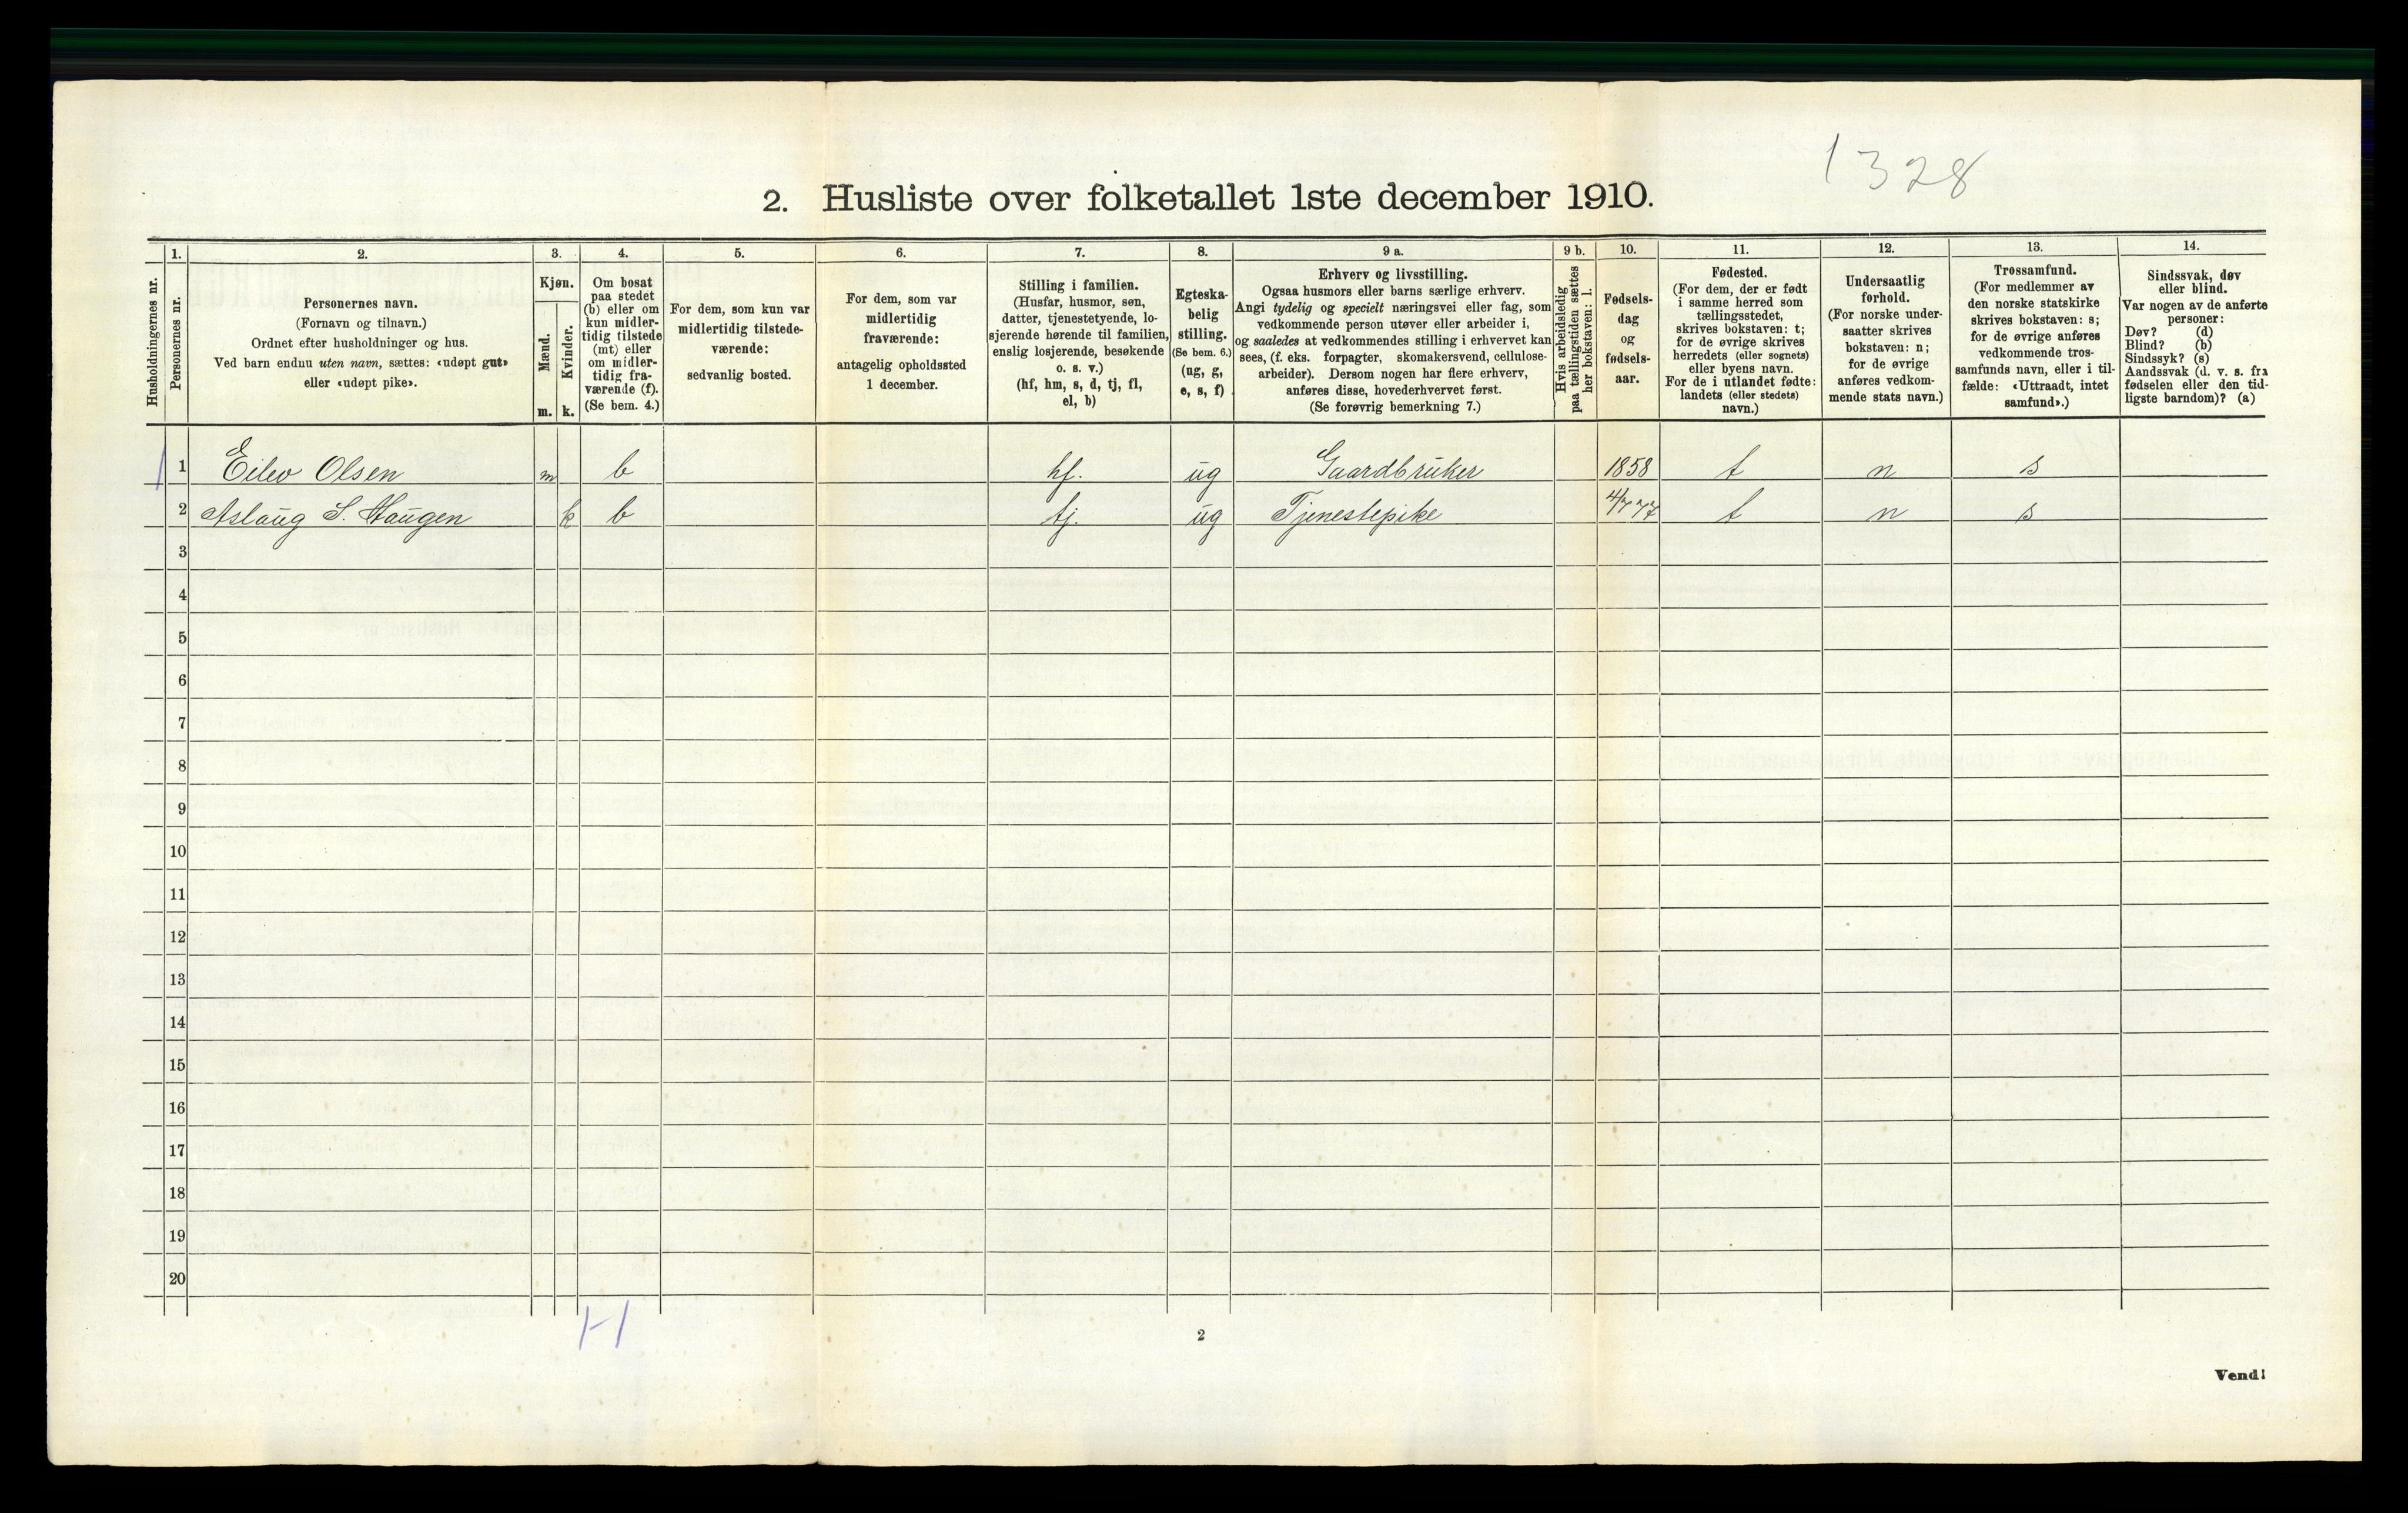 1328
2. Husliste over folketallet 1ste december 1910.
Husholdningernes nr.
1.
Personernes nr.
2.
Personernes navn.
(Fornavn og tilnavn.)
Ordnet efter husholdninger og hus.
Ved barn endnu uten navn, sættes: «udøpt gut»
eller «udøpt pike».
3.
Kjøn.
Mænd.
m.
Kvinder.
k.
4.
Om bosat
paa stedet
(b) eller om
kun midler-
tidig tilstede
(mt) eller
om midler-
tidig fra-
værende (f).
(Se bem. 4.)
5.
For dem, som kun var
midlertidig tilstede-
værende:
sedvanlig bosted.
6.
For dem, som var
midlertidig
fraværende:
antagelig opholdssted
1 december.
7.
Stilling i familien.
(Husfar, husmor, søn,
datter, tjenestetyende, lo-
sjerende hørende til familien,
enslig losjerende, besøkende
o. s. v.)
(hf, hm, s, d, tj, fl,
el, b)
8.
Egteska-
belig
stilling.
(Se bem. 6.)
(ug, g,
e, s, f)
9 a.
Erhverv og livsstilling.
Ogsaa husmors eller barns særlige erhverv.
Angi tydelig og specielt næringsvei eller fag, som
vedkommende person utøver eller arbeider i,
og saaledes at vedkommendes stilling i erhvervet kan
sees, (f. eks. forpagter, skomakersvend, cellulose-
arbeider). Dersom nogen har flere erhverv,
anføres disse, hovederhvervet først.
(Se forøvrig bemerkning 7.)
9 b.
Hvis arbeidsledig
paa tællingstiden sættes
her bokstaven: l.
10.
Fødsels-
dag
og
fødsels-
aar.
11.
Fødested.
(For dem, der er født
i samme herred som
tællingsstedet,
skrives bokstaven: t;
for de øvrige skrives
herredets (eller sognets)
eller byens navn.
For de i utlandet fødte:
landets (eller stedets)
navn.)
12.
Undersaatlig
forhold.
(For norske under-
saatter skrives
bokstaven: n;
for de øvrige
anføres vedkom-
mende stats navn.)
13.
Trossamfund.
(For medlemmer av
den norske statskirke
skrives bokstaven: s;
for de øvrige anføres
vedkommende tros-
samfunds navn, eller i til-
fælde: «Uttraadt, intet
samfund».)
14.
Sindssvak, døv
eller blind.
Var nogen av de anførte
personer:
Døv? (d)
Blind? (b)
Sindssyk? (s)
Aandssvak (d. v. s. fra
fødselen eller den tid-
ligste barndom)? (a)
1 1 Eilev Olsen m b hf. ug Gaardbruker 1858 t n s
2 Aslaug S. Haugen k b tj. ug Tjenestepike 4/7 77 t n s
3
4
5
6
7
8
9
10
11
12
13
14
15
16
17
18
19
20
1-1
2
Vend!